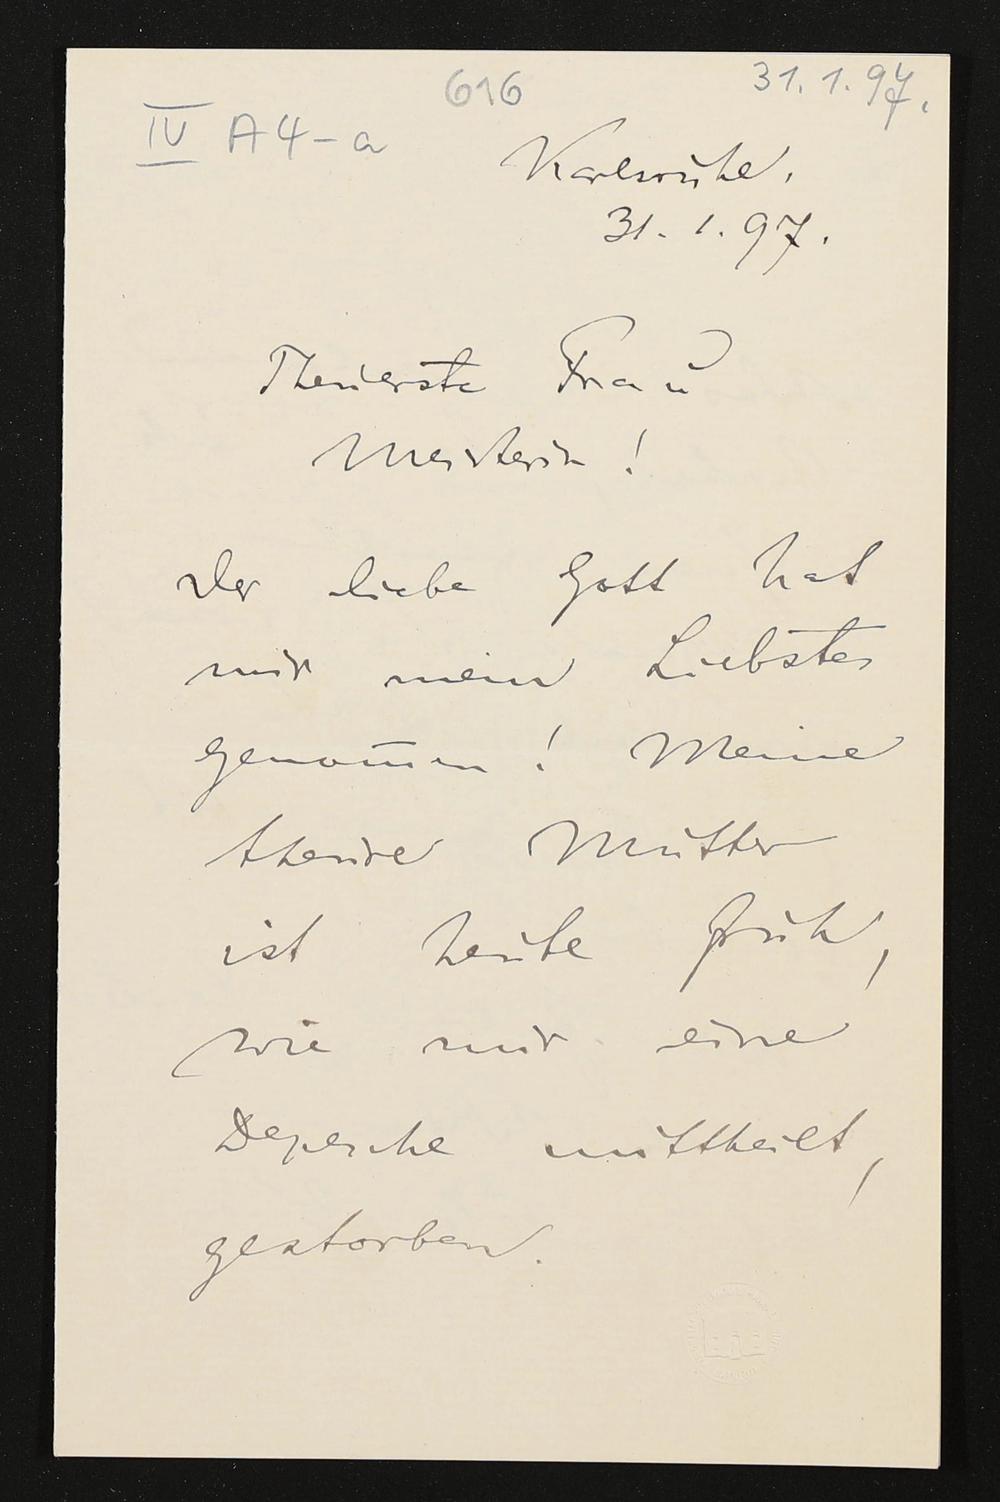 616
31.1.97.
IV A4-a
Karlsruhe.
31.1.97.
Theuerste Frau
Meisterin!
Der liebe Gott hat
mir mein Liebstes
genom̄en! Meine
theure Mutter
ist heute früh,
wie mir eine
Depesche mittheilt,
gestorben.